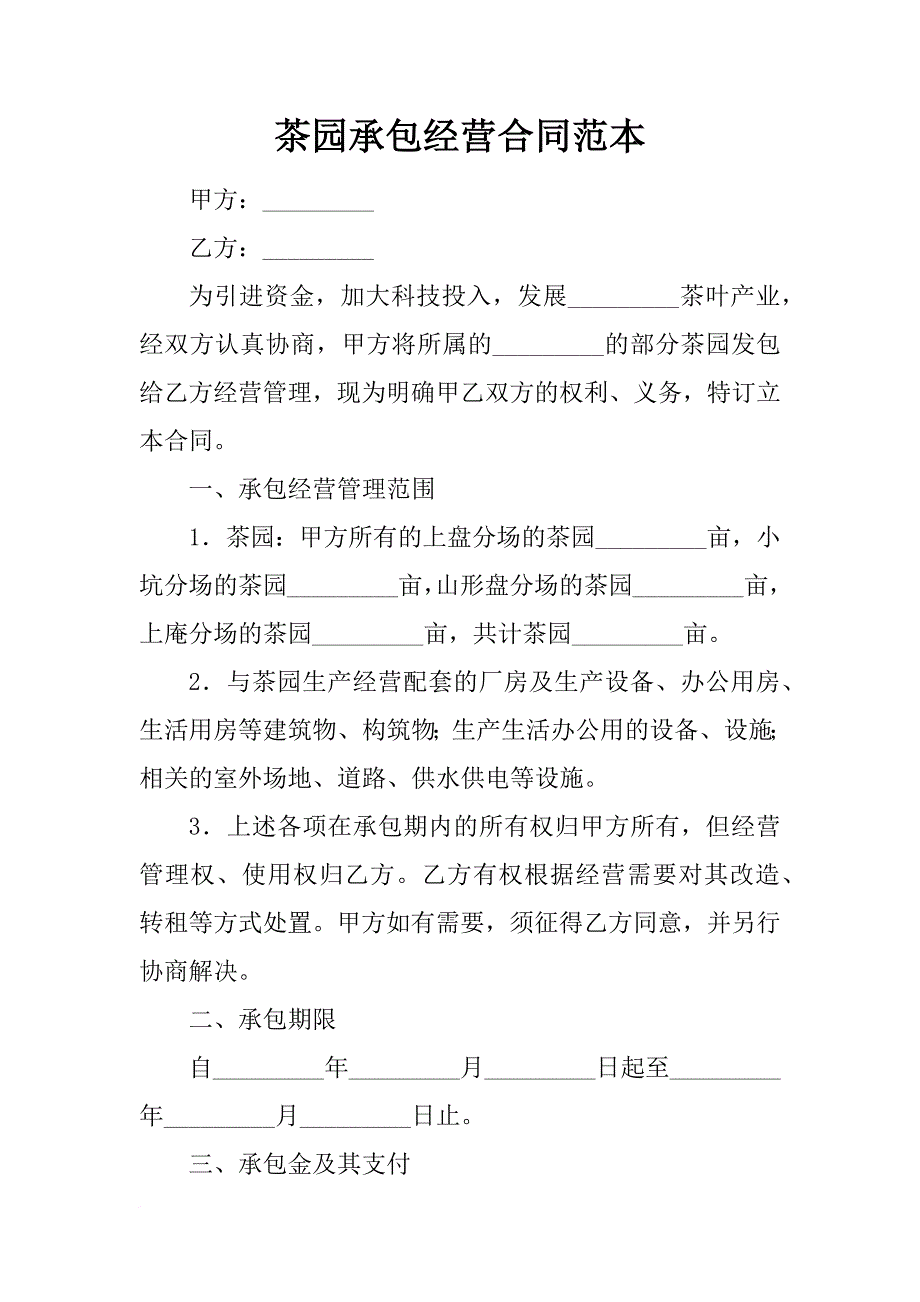 茶园承包经营合同范本
甲方：_________
乙方：_________
为引进资金，加大科技投入，发展_________茶叶产业，
经双方认真协商，甲方将所属的_________的部分茶园发包
给乙方经营管理，现为明确甲乙双方的权利、义务，特订立
本合同。
一、承包经营管理范围
1．茶园：甲方所有的上盘分场的茶园_________亩，小
坑分场的茶园_________亩，山形盘分场的茶园_________亩，
上庵分场的茶园_________亩，共计茶园_________亩。
2．与茶园生产经营配套的厂房及生产设备、办公用房、
生活用房等建筑物、构筑物；生产生活办公用的设备、设施；
相关的室外场地、道路、供水供电等设施。
3．上述各项在承包期内的所有权归甲方所有，但经营
管理权、使用权归乙方。乙方有权根据经营需要对其改造、
转租等方式处置。甲方如有需要，须征得乙方同意，并另行
协商解决。
二、承包期限
自_________年_________月_________日起至_________
年_________月_________日止。
三、承包金及其支付